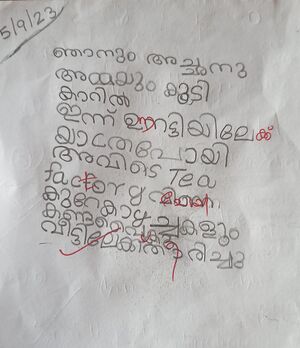 5/9/23
ഞാനും അച്ഛനു
അമ്മയും കൂടി
കാറിൽ
ഇന്ന് ഊട്ടിയിലേക്ക്
യാത്രപോയി
അവിടെ Tea
factory
കുറേകാഴ്ചകളും
കണ്ടു
വീട്ടിലേക്ക് തിരിച്ചു